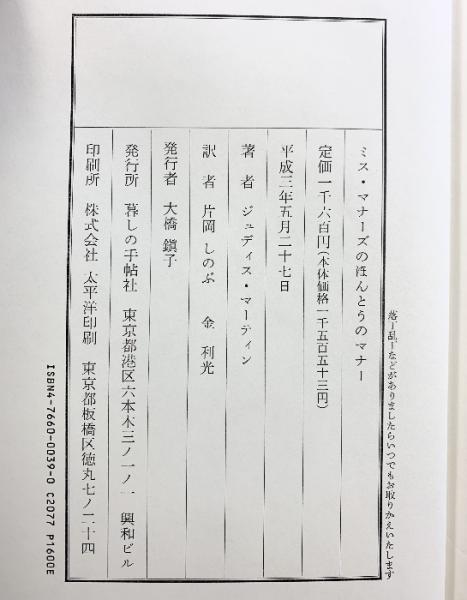 落丁乱丁などがありましたらいつでもお取りかえいたします
ミス・マナーズのほんとうのマナー
定価一千六百円(本体価格一千五百五十三円)
平成三年五月二十七日
著者 ジュディス・マーティン
訳者 片岡しのぶ 金利光
発行者 大橋鎭子
発行所 暮しの手帖社 東京都港区六本木三ノ一ノ一 興和ビル
印刷所 株式会社 太平洋印刷 東京都板橋区徳丸七ノ二十四
ISBN4-7660-0039-0 C2077 P1600E